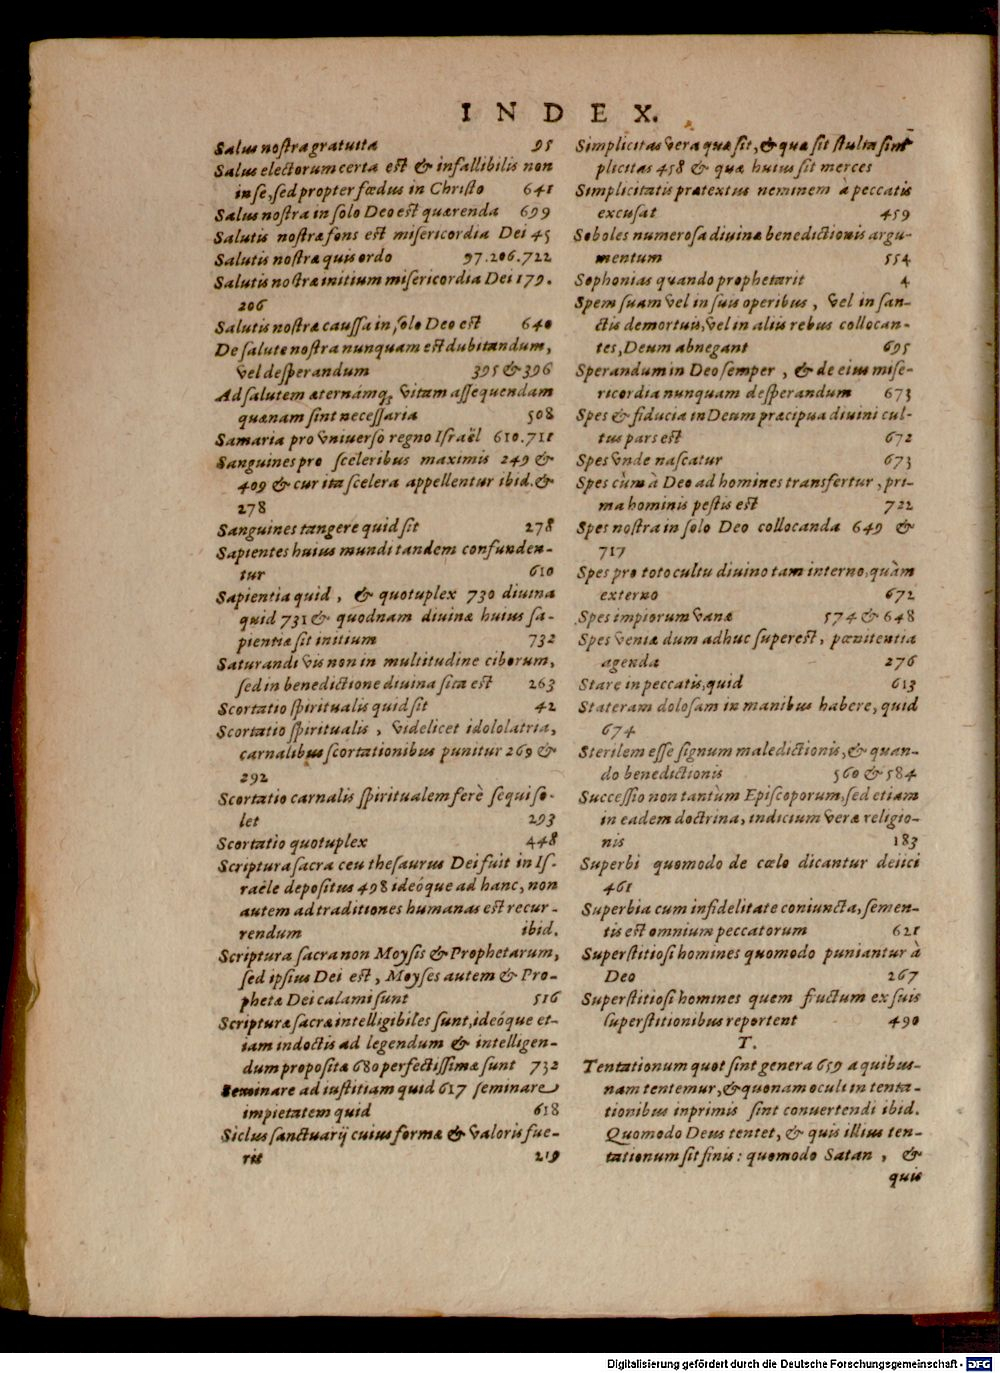 INDEX.
Salus nostra gratuita 95
Salus electorum certa est & infallibilis non
in se, sed propter fœdus in Christo 641
Salus nostra in solo Deo est quærenda 699
Salutis nostræ fons est misericordia Dei 45
Salutis nostræ quis ordo 97.206.722
Salutis nostræ initium misericordia Dei 179.
206
Salutis nostræ caussa in solo Deo est 640
De salute nostra nunquam est dubitandum,
vel desperandum 395 & 396
Ad salutem æternámq; vitam assequendam
quænam sint necessaria 508
Samaria pro vniuerso regno Israël 610.711
Sanguines pro sceleribus maximis 249 &
409 & cur ita scelera appellentur ibid. &
278
Sanguines tangere quid sit 278
Sapientes huius mundi tandem confunden-
tur 610
Sapientia quid, & quotuplex 730 diuina
quid 731 & quodnam diuinæ huius sa-
pientiæ sit initium 732
Saturandi vis non in multitudine ciborum,
sed in benedictione diuina sita est 263
Scortatio spiritualis quid sit 42
Scortatio spiritualis, videlicet idololatria,
carnalibus scortationibus punitur 269 &
292
Scortatio carnalis spiritualem ferè sequi so-
let 293
Scortatio quotuplex 448
Scriptura sacra ceu thesaurus Dei fuit in Is-
raële depositus 498 ideóque ad hanc, non
autem ad traditiones humanas est recur-
rendum ibid.
Scriptura sacra non Moysis & Prophetarum,
sed ipsius Dei est, Moyses autem & Pro-
phetæ Dei calami sunt 516
Scripturæ sacræ intelligibiles sunt, ideóque et-
iam indoctis ad legendum & intelligen-
dum propositæ 680 perfectissimæ sunt 732
Seminare ad iustitiam quid 617 seminare
impietatem quid 618
Siclus sanctuarij cuius formæ & valoris fue-
rit 219
Simplicitas vera quæ sit, & quæ sit stulta sim-
plicitas 458 & quæ huius sit merces
Simplicitatis prætextus neminem à peccatis
excusat 459
Soboles numerosa diuinæ benedictionis argu-
mentum 554
Sophonias quando prophetarit 4
Spem suam vel in suis operibus, vel in san-
ctis demortuis, vel in aliis rebus collocan-
tes, Deum abnegant 695
Sperandum in Deo semper, & de eius mise-
ricordia nunquam desperandum 673
Spes & fiducia in Deum præcipua diuini cul-
tus pars est 672
Spes vnde nascatur 673
Spes cùm à Deo ad homines transfertur, pri-
ma hominis pestis est 722
Spes nostra in solo Deo collocanda 649 &
717
Spes pro toto cultu diuino tam interno, quàm
externo 672
Spes impiorum vana 574 & 648
Spes veniæ dum adhuc superest, pœnitentia
agenda 276
Stare in peccatis, quid 613
Stateram dolosam in manibus habere, quid
674
Sterilem esse signum maledictionis, & quan-
do benedictionis 560 & 584
Successio non tantùm Episcoporum, sed etiam
in eadem doctrina, indicium veræ religio-
nis 183
Superbi quomodo de cœlo dicantur deiici
461
Superbia cum infidelitate coniuncta, semen-
tis est omnium peccatorum 621
Superstitiosi homines quomodo puniantur à
Deo 267
Superstitiosi homines quem fructum ex suis
superstitionibus reportent 490
T.
Tentationum quot sint genera 659 a quibus-
nam tentemur, & quonam oculi in tenta-
tionibus inprimis sint conuertendi ibid.
Quomodo Deus tentet, & quis illius ten-
tationum sit finis: quomodo Satan, &
quis
Digitalisierung gefördert durch die Deutsche Forschungsgemeinschaft - DFG